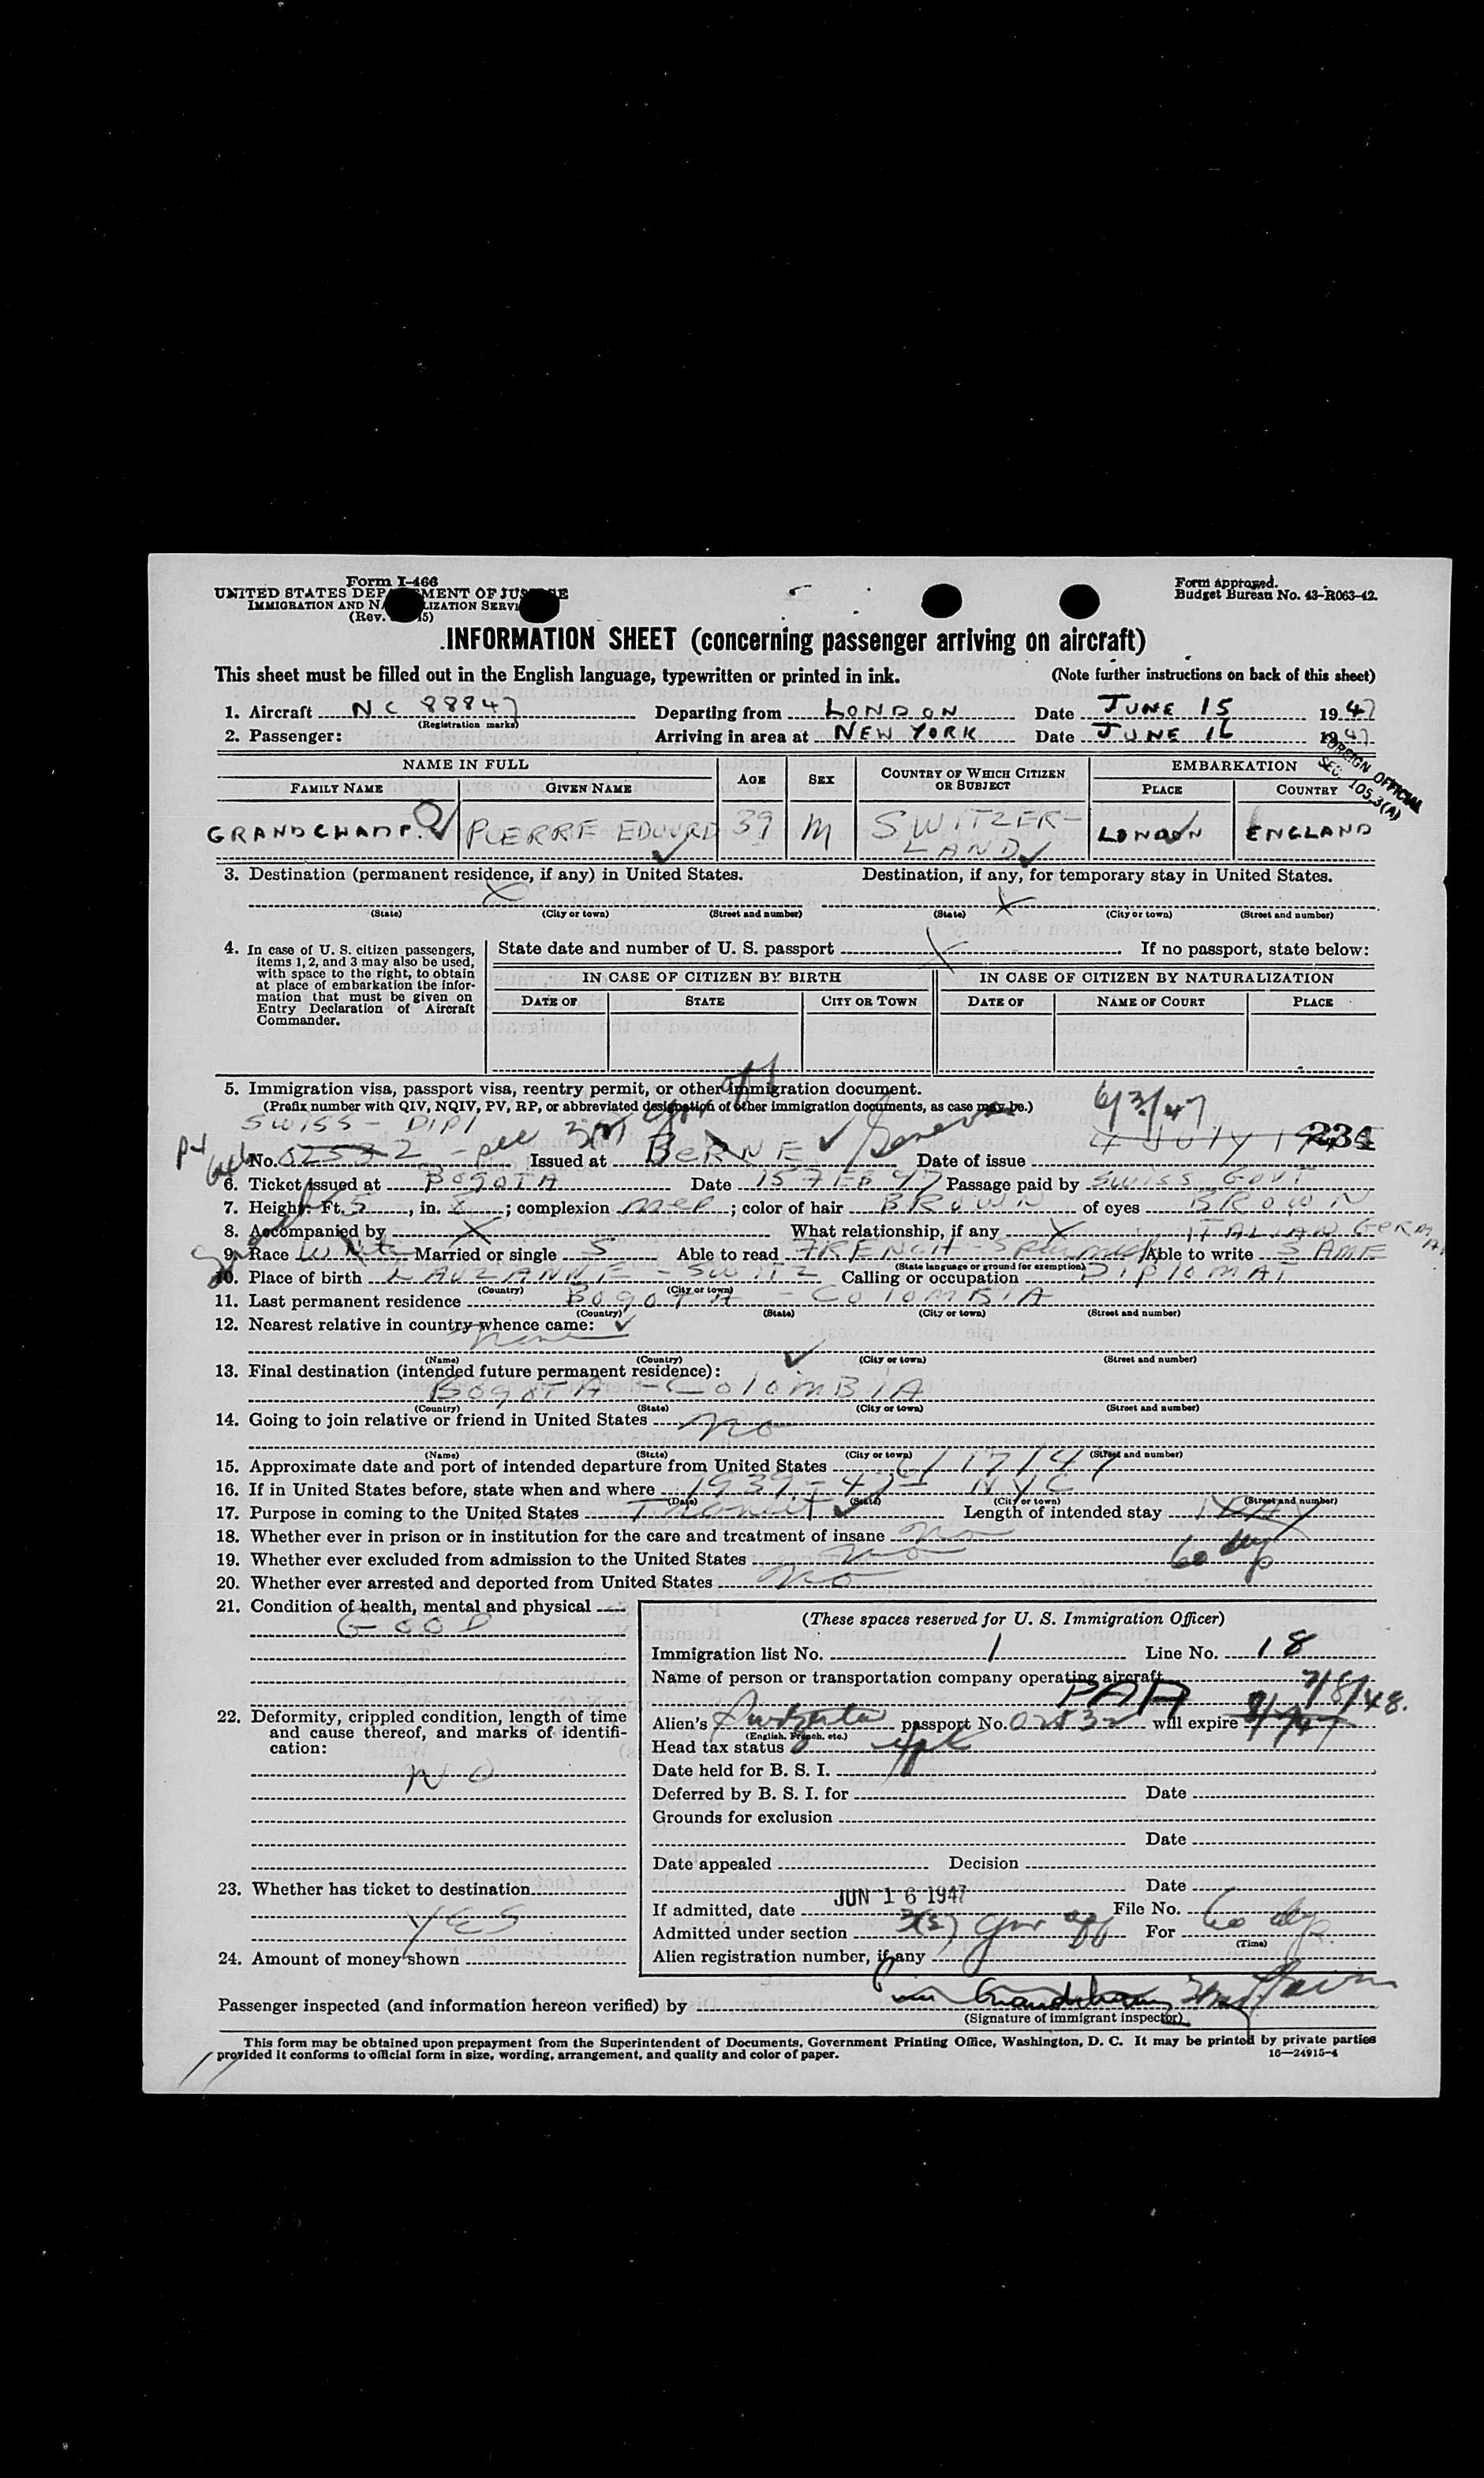 Form I-466
UNITED STATES DEPARTMENT OF JUSTICE
IMMIGRATION AND NATURALIZATION SERVICE
(Rev. 5)
Form approved.
Budget Bureau No. 43-R063-42.
INFORMATION SHEET (concerning passenger arriving on aircraft)
This sheet must be filled out in the English language, typewritten or printed in ink. (Note further instructions on back of this sheet)
1. Aircraft NC 88847 Departing from LONDON Date JUNE 15 1947
(Registration marks)
2. Passenger: Arriving in area at NEW YORK Date JUNE 16 1947
FOREIGN OFFICIAL
SEC. 105.3(A)
NAME IN FULL AGE SEX COUNTRY OF WHICH CITIZEN OR SUBJECT EMBARKATION
FAMILY NAME GIVEN NAME PLACE COUNTRY
GRANDCHAMP. PIERRE EDOUARD 39 M SWITZER- LONDON ENGLAND
LAND
3. Destination (permanent residence, if any) in United States. Destination, if any, for temporary stay in United States.
X X
(State) (City or town) (Street and number) (State) (City or town) (Street and number)
4. In case of U. S. citizen passengers, items 1, 2, and 3 may also be used, with space to the right, to obtain at place of embarkation the information that must be given on Entry Declaration of Aircraft Commander.
State date and number of U. S. passport X If no passport, state below:
IN CASE OF CITIZEN BY BIRTH IN CASE OF CITIZEN BY NATURALIZATION
DATE OF STATE CITY OR TOWN DATE OF NAME OF COURT PLACE
5. Immigration visa, passport visa, reentry permit, or other immigration document.
(Prefix number with QIV, NQIV, PV, RP, or abbreviated designation of other immigration documents, as case may be.)
SWISS - DIPL 6/3/47
234
No. 02532 Issued at BERNE Geneva Date of issue 4 July 194
6. Ticket issued at BOGOTA Date 15 FEB 47 Passage paid by SWISS GOVT
7. Height: Ft. 5, in. 8; complexion MED; color of hair BROWN of eyes BROWN
8. Accompanied by X What relationship, if any X
ITALIAN GERMAN
9. Race White Married or single S Able to read FRENCH - Spanish Able to write SAME
(State language or ground for exemption)
10. Place of birth LAUZANNE - SWITZ Calling or occupation DIPLOMAT
(Country) (City or town)
11. Last permanent residence BOGOTA - COLOMBIA
(Country) (State) (City or town) (Street and number)
12. Nearest relative in country whence came:
None
(Name) (Country) (City or town) (Street and number)
13. Final destination (intended future permanent residence):
BOGOTA - COLOMBIA
(Country) (State) (City or town) (Street and number)
14. Going to join relative or friend in United States No
(Name) (State) (City or town) (Street and number)
15. Approximate date and port of intended departure from United States 6/17/47
16. If in United States before, state when and where 1939 - 47 - NYC
(Date) (State) (City or town) (Street and number)
17. Purpose in coming to the United States Transit Length of intended stay
18. Whether ever in prison or in institution for the care and treatment of insane No
19. Whether ever excluded from admission to the United States No 60 days
20. Whether ever arrested and deported from United States No
21. Condition of health, mental and physical
GOOD
22. Deformity, crippled condition, length of time and cause thereof, and marks of identification:
NO
23. Whether has ticket to destination
YES
24. Amount of money shown
(These spaces reserved for U. S. Immigration Officer)
Immigration list No. 1 Line No. 18
Name of person or transportation company operating aircraft
PAA 7/8/48.
Alien's passport No. 02532 will expire
(English, French, etc.)
Head tax status
Date held for B. S. I.
Deferred by B. S. I. for Date
Grounds for exclusion
Date
Date appealed Decision
Date
If admitted, date JUN 16 1947 File No.
Admitted under section 3(1) Gov off For 60 dys.
(Time)
Alien registration number, if any
Passenger inspected (and information hereon verified) by
(Signature of immigrant inspector)
This form may be obtained upon prepayment from the Superintendent of Documents, Government Printing Office, Washington, D. C. It may be printed by private parties
provided it conforms to official form in size, wording, arrangement, and quality and color of paper. 16—24915-4